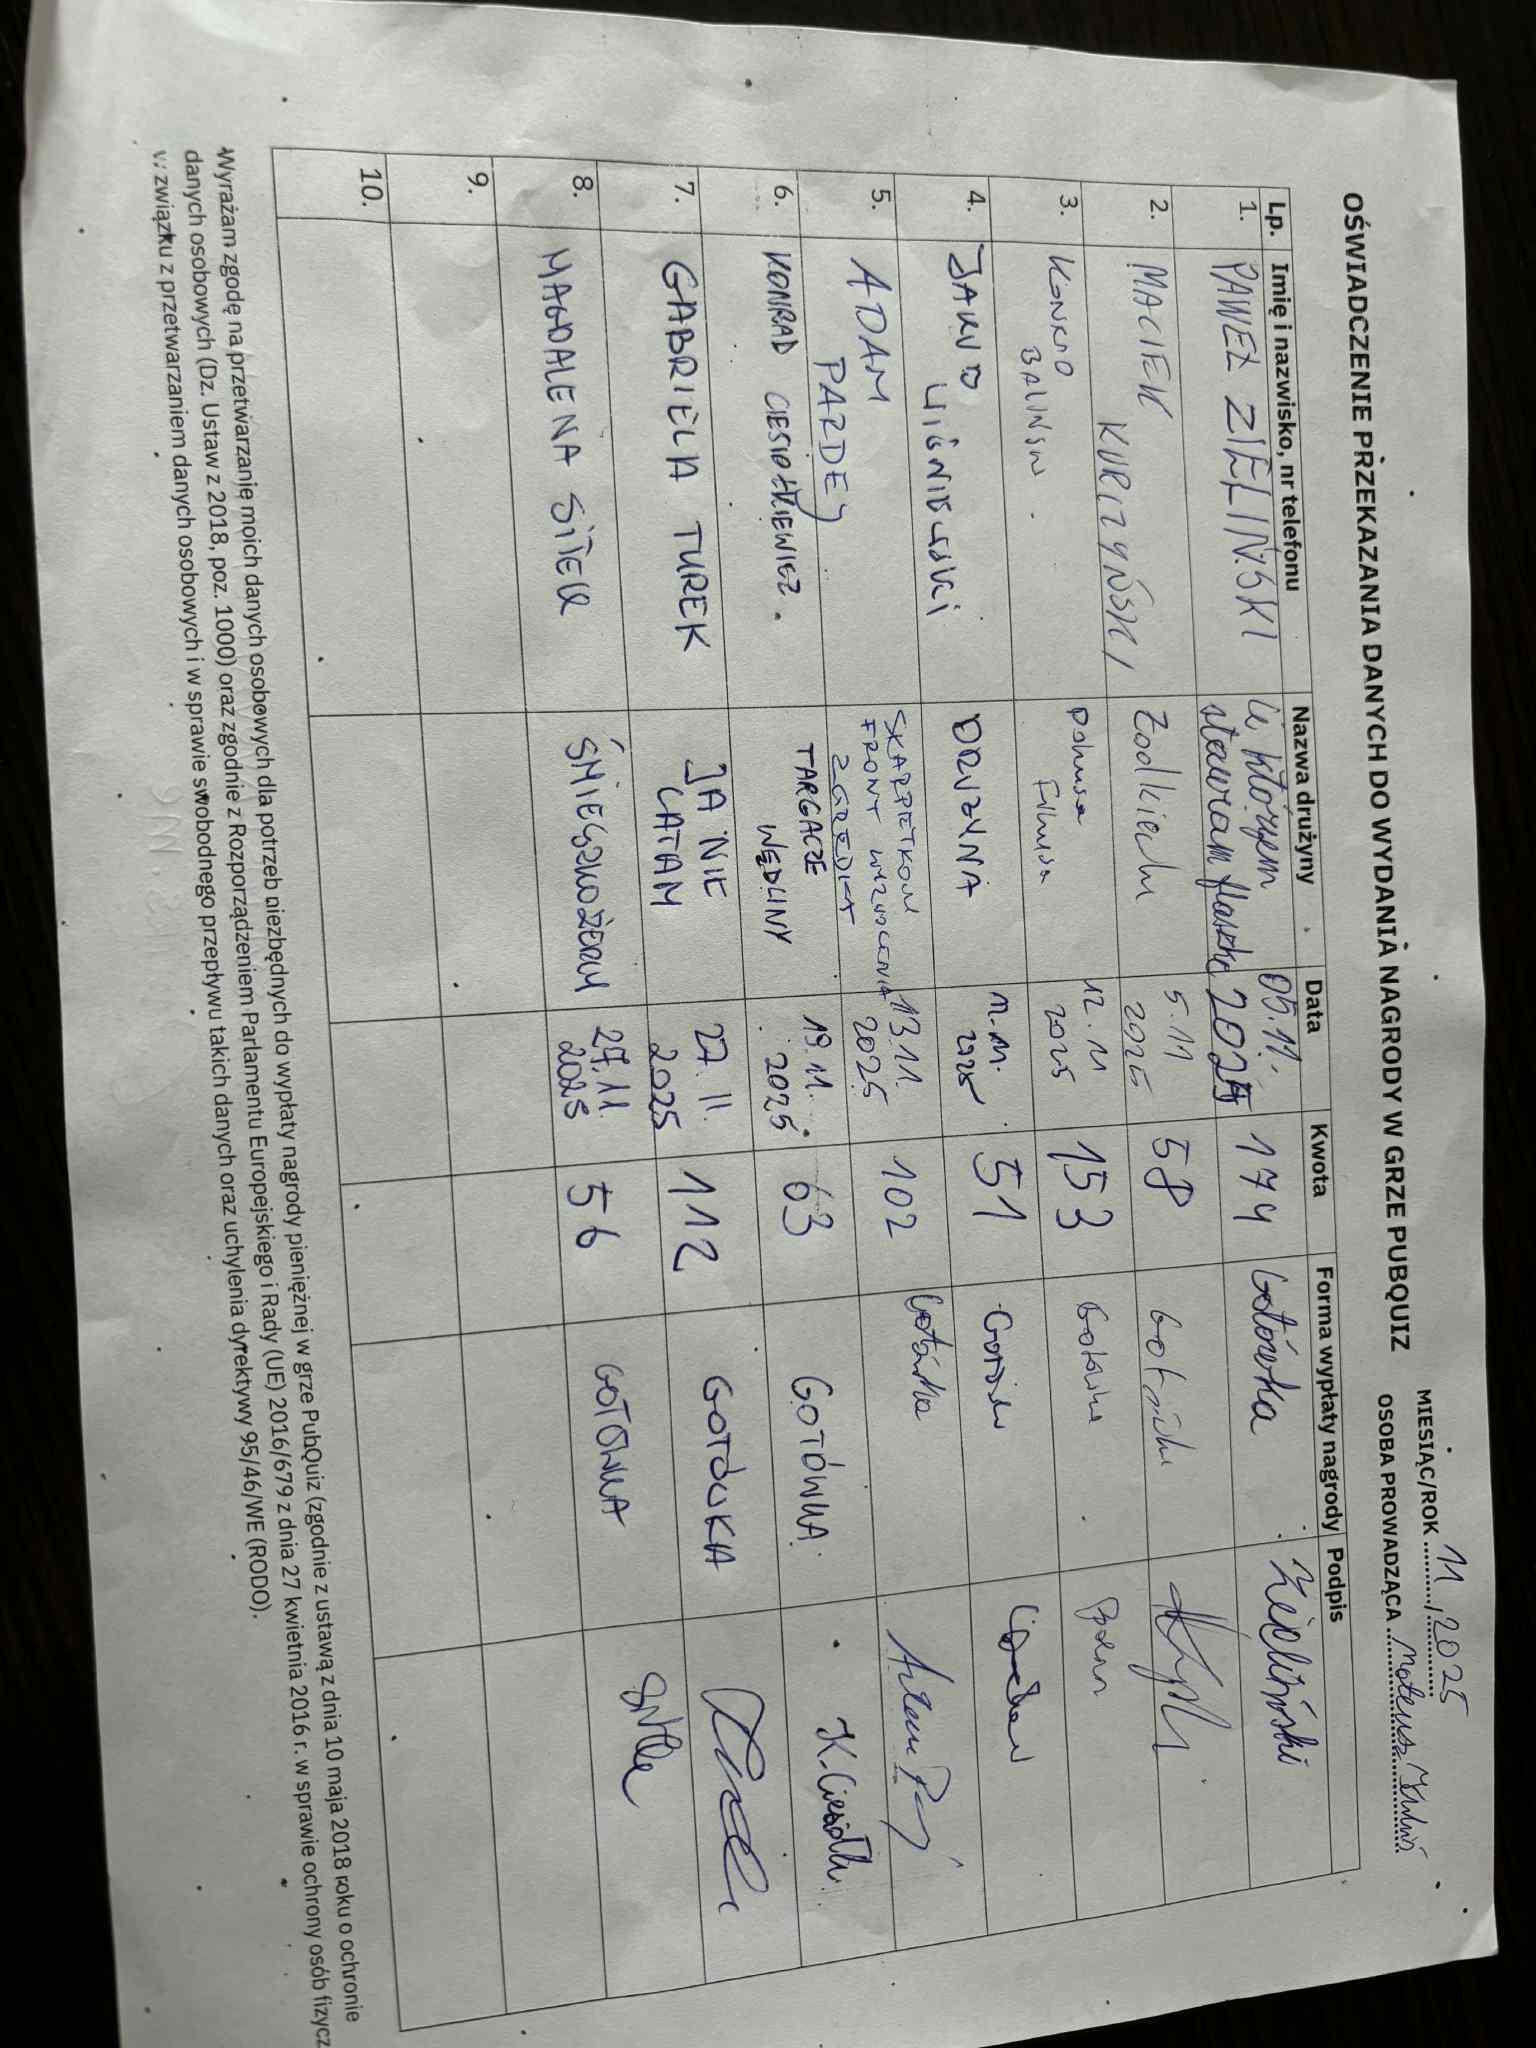 MIESIĄC/ROK 11 / 2025
OŚWIADCZENIE PRZEKAZANIA DANYCH DO WYDANIA NAGRODY W GRZE PUBQUIZ
OSOBA PROWADZĄCA Mateusz
Lp. Imię i nazwisko, nr telefonu Nazwa drużyny Data Kwota Forma wypłaty nagrody Podpis
1. PAWEŁ ZIELIŃSKI W którym stawiam flaszkę 05.11. 2025 174 Gotówka Zieliński
2. MACIEK KURCZYŃSKI Żodkiewki 5.11 2025 58 Gotówka
3. KONRAD 12.11 2025 153 Gotówka
4. JAKUB WIŚNIEWSKI DRUŻYNA 2025 51
5. ADAM PARDEJ SKARPETKOWY FRONT WYZWOLENIA ZGREDKA 13.11. 2025 102 Gotówka
6. KONRAD CIESIOŁKIEWICZ TARGACZE WĘDLINY 19.11. 2025 63 GOTÓWKA
7. GABRIELA TUREK JA NIE LATAM 27.11. 2025 112 GOTÓWKA
8. MAGDALENA SITEK ŚMIESZKOŻERY 27.11. 2025 56 GOTÓWKA
9.
10.
Wyrażam zgodę na przetwarzanie moich danych osobowych dla potrzeb niezbędnych do wypłaty nagrody pieniężnej w grze PubQuiz (zgodnie z ustawą z dnia 10 maja 2018 roku o ochronie
danych osobowych (Dz. Ustaw z 2018, poz. 1000) oraz zgodnie z Rozporządzeniem Parlamentu Europejskiego i Rady (UE) 2016/679 z dnia 27 kwietnia 2016 r. w sprawie ochrony osób fizycz
w związku z przetwarzaniem danych osobowych i w sprawie swobodnego przepływu takich danych oraz uchylenia dyrektywy 95/46/WE (RODO).